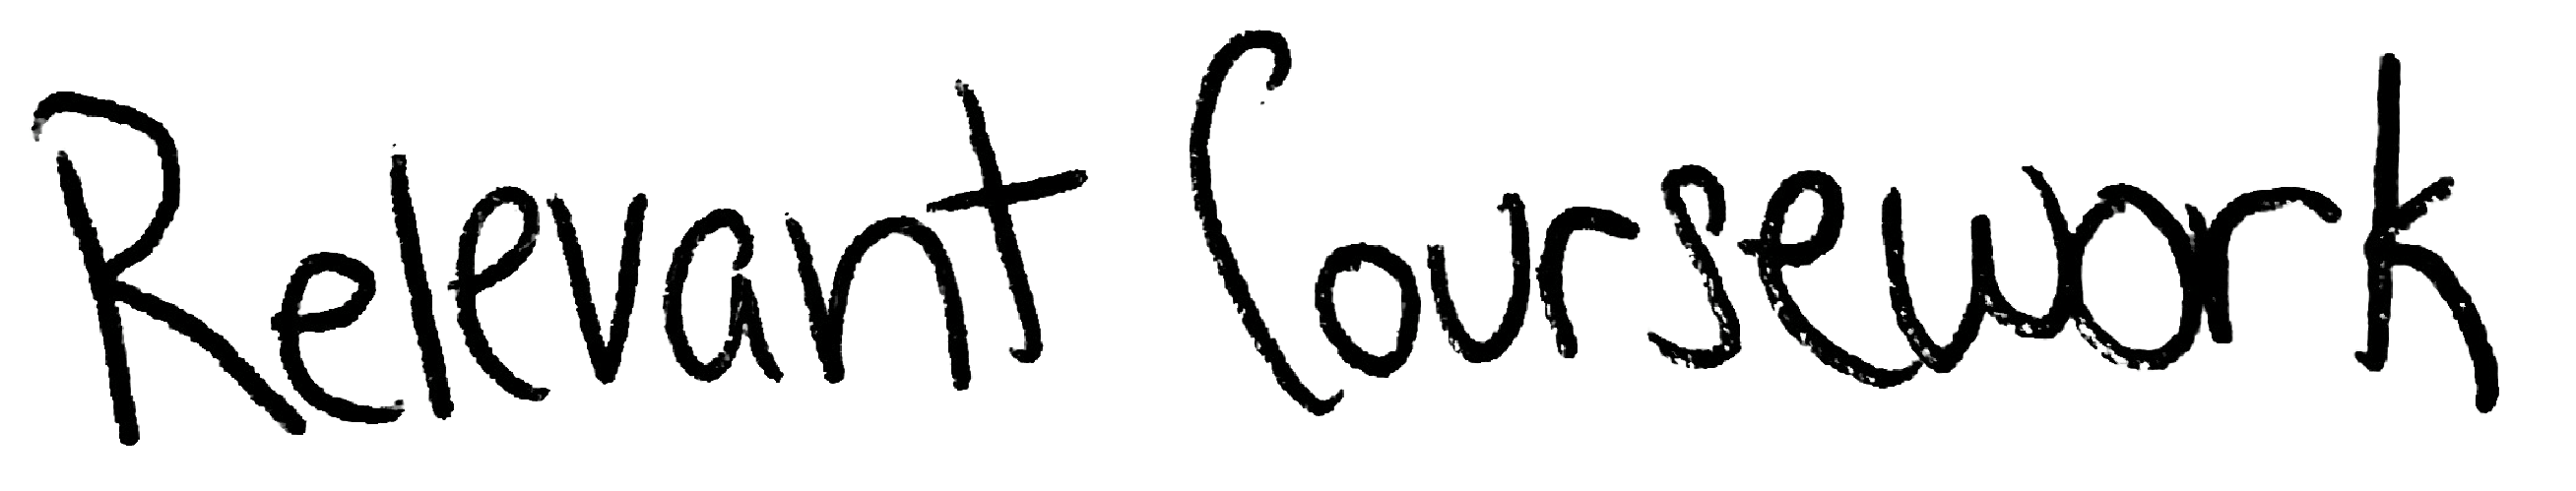 Relevant Coursework